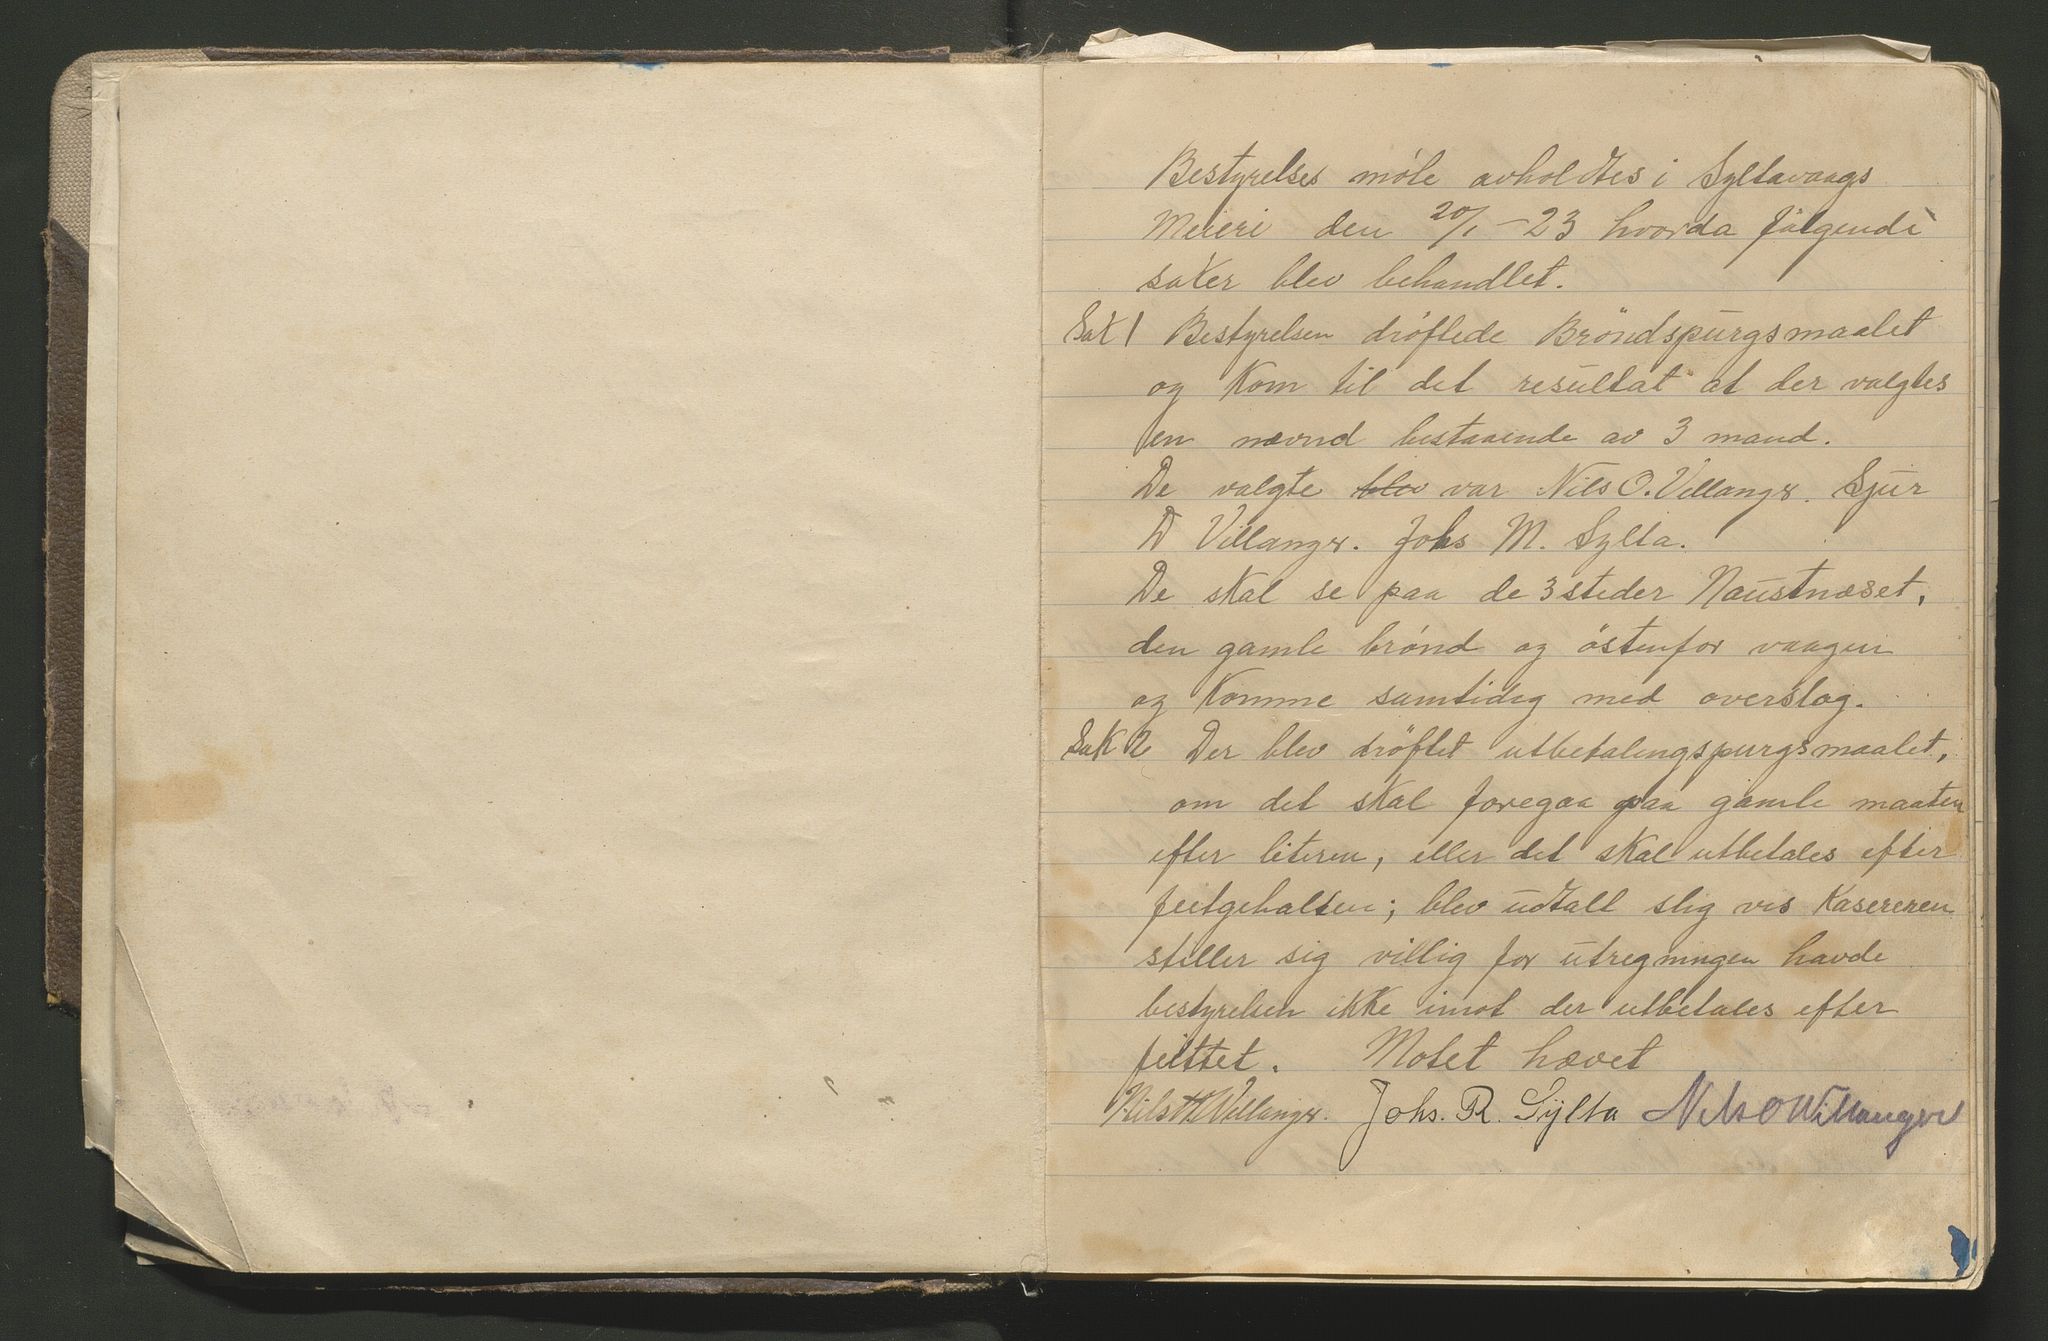 Bestyrelses møte avholdtes i Syltavaags
Meieri den 20/1 - 23 hvorda følgende
saker blev behandlet.
Sak 1 Bestyrelsen drøftede Brøndspurgsmaalet
og kom til det resultat at der valgtes
en nævnd bestaaende av 3 mand.
De valgte blev var Nils O. Villangr. Sjur
D Villangr. Johs M. Sylta.
De skal se paa de 3 steder Naustnæset,
den gamle brønd og östenfor vaagen
og komme samtidig med overslag.
Sak 2 Der blev drøftet utbetalingspurgsmaalet,
om det skal foregaa paa gamle maaten
efter literen, eller det skal utbetales efter
feitgehalten; blev udtalt slig vis Kasereren
stiller sig villig for utregningen havde
bestyrelsen ikke imot der utbetales efter
feittet. Motet hævet
Nils Villangr. Johs. R. Sylta Nils O Villanger